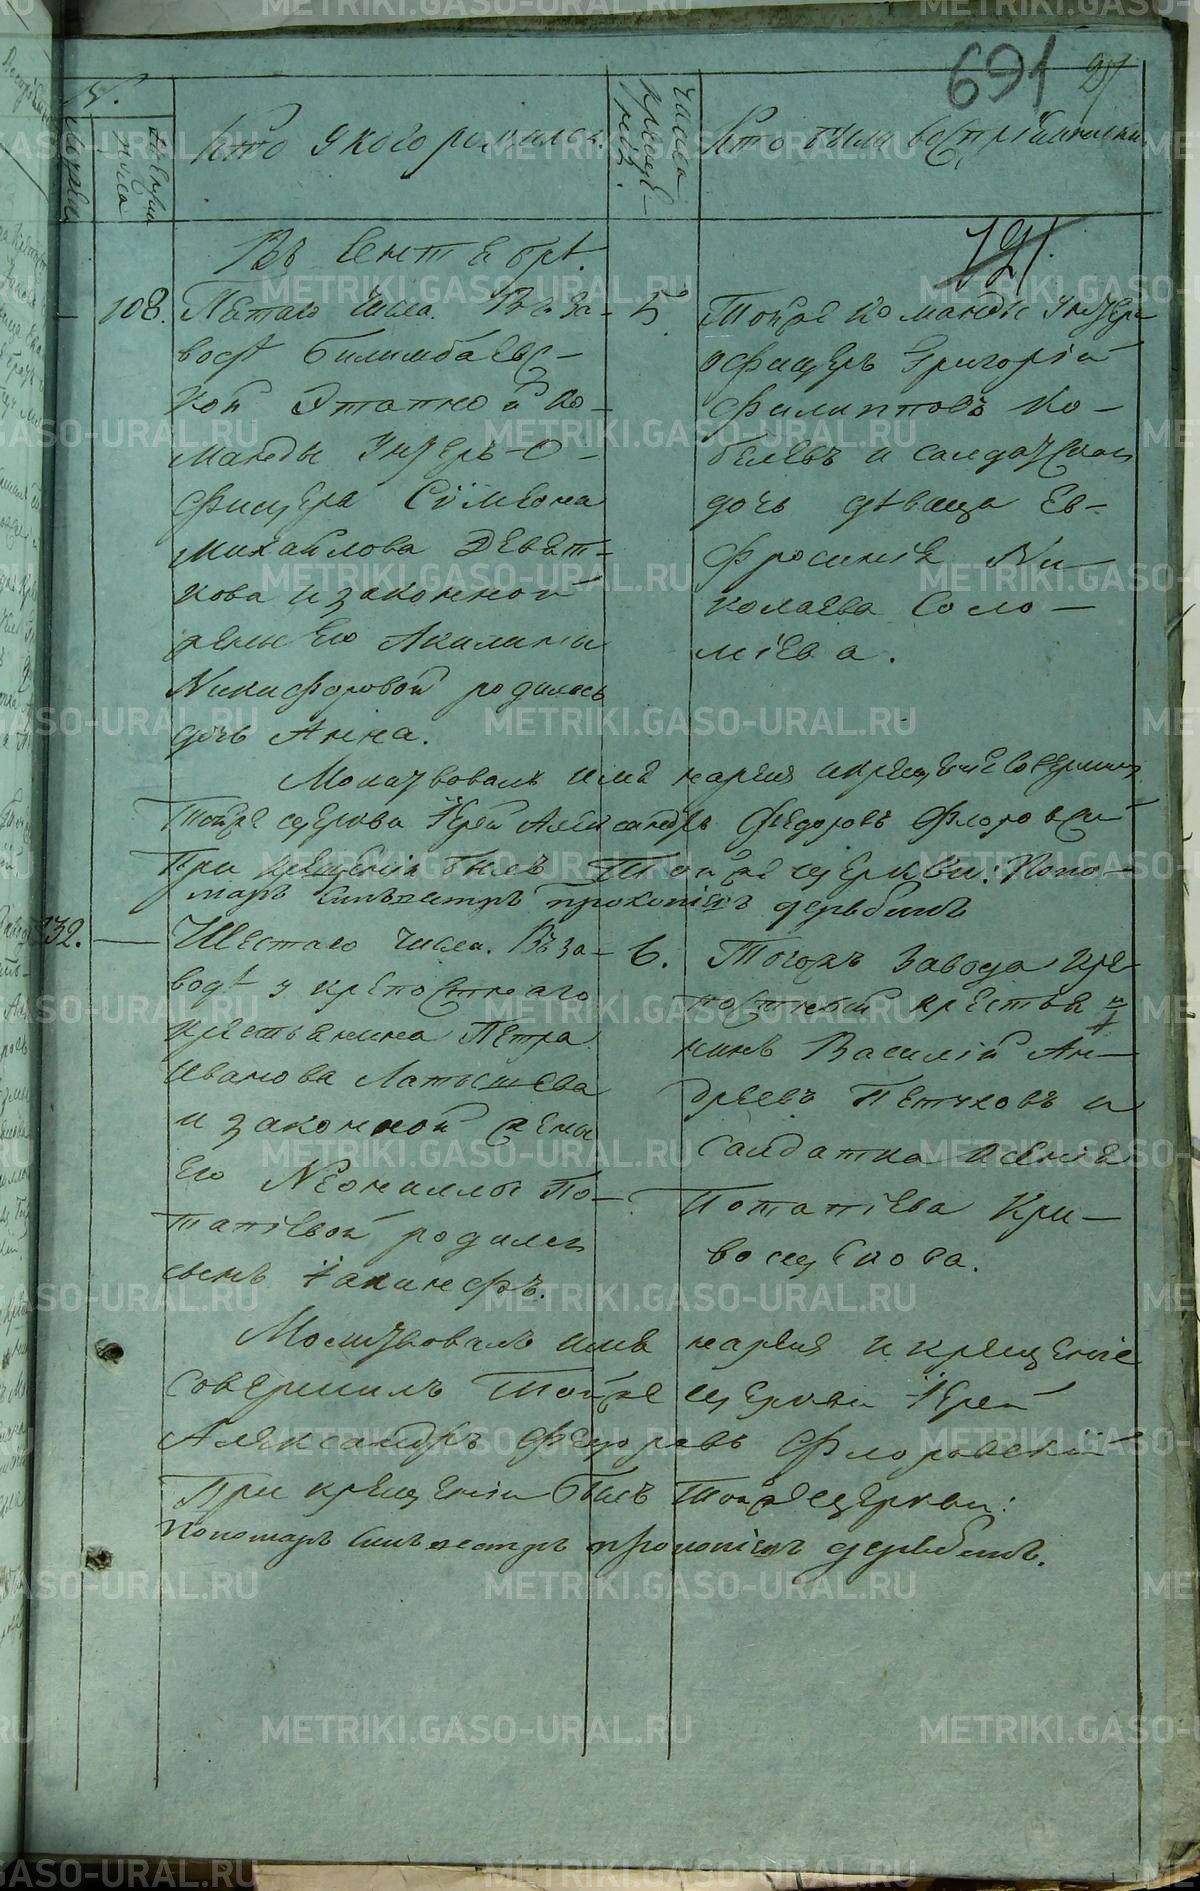 691
№.
Мужеска
Женска
пола
Кто у кого родился.
Числа
креще-
нія.
Кто были воспріемники.
121.
Въ Сентябрѣ.
108.
Пятаго числа. Въ за-
водѣ Билимбаевс-
кой Этапной ко-
манды Унтеръ-О-
фицера Сѵмеона
Михайлова Девят-
кова и законной
жены его Акилины
Никифоровой родилась
дочь Анна.
5.
Той же команды Унтеръ
офицеръ Григорій
Филипповъ Ко-
белевъ и салдатская
дочь дѣвица Ев-
фросинія Ни-
колаева Соло-
міева.
Молитвовалъ имя нарекъ и крещеніе совершилъ
той же церкви Іерей Александръ Федоровъ Флоровскій
При крещеніи былъ той же церкви: Поно-
марь Сильвестръ Прокопіевъ Дерябинъ
132.
Шестаго числа. Въ за-
водѣ у крепостнаго
крестьянина Петра
Иванова Латышева
и законной жены
его Неониллы По-
тапіевой родился
сынъ Іакинфъ.
6.
Тогожъ завода кре
постный крестья
нинъ Василій Ан-
дреевъ Петуховъ и
Салдатка Ксенія
Потапіева Кри-
вощекова.
Молитвовалъ имя нарекъ и крещеніе
совершилъ той же церкви Іерей
Александръ Федоровъ Флоровскій
При крещеніи былъ той же церкви:
Пономарь Сильвестръ Прокопіевъ Дерябинъ.
METRIKI.GASO-URAL.RU